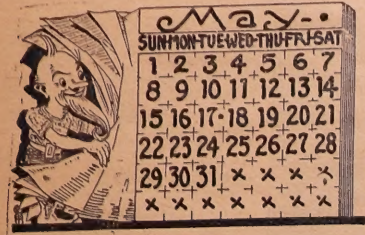 May
SUN-MON-TUE-WED-THU-FRI-SAT
1 2 3 4 5 6 7
8 9 10 11 12 13 14
15 16 17 18 19 20 21
22 23 24 25 26 27 28
29 30 31 x x x x
x x x x x x x